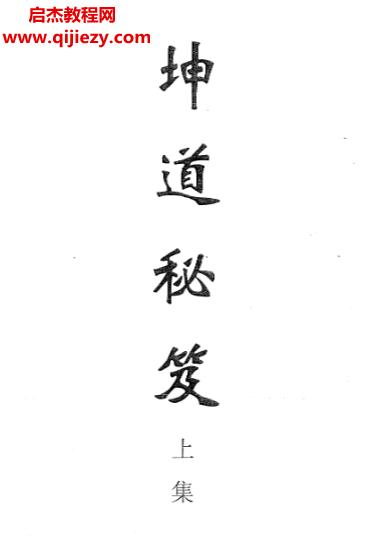 启杰教程网
www.qijiezy.com
坤道秘笈
上集